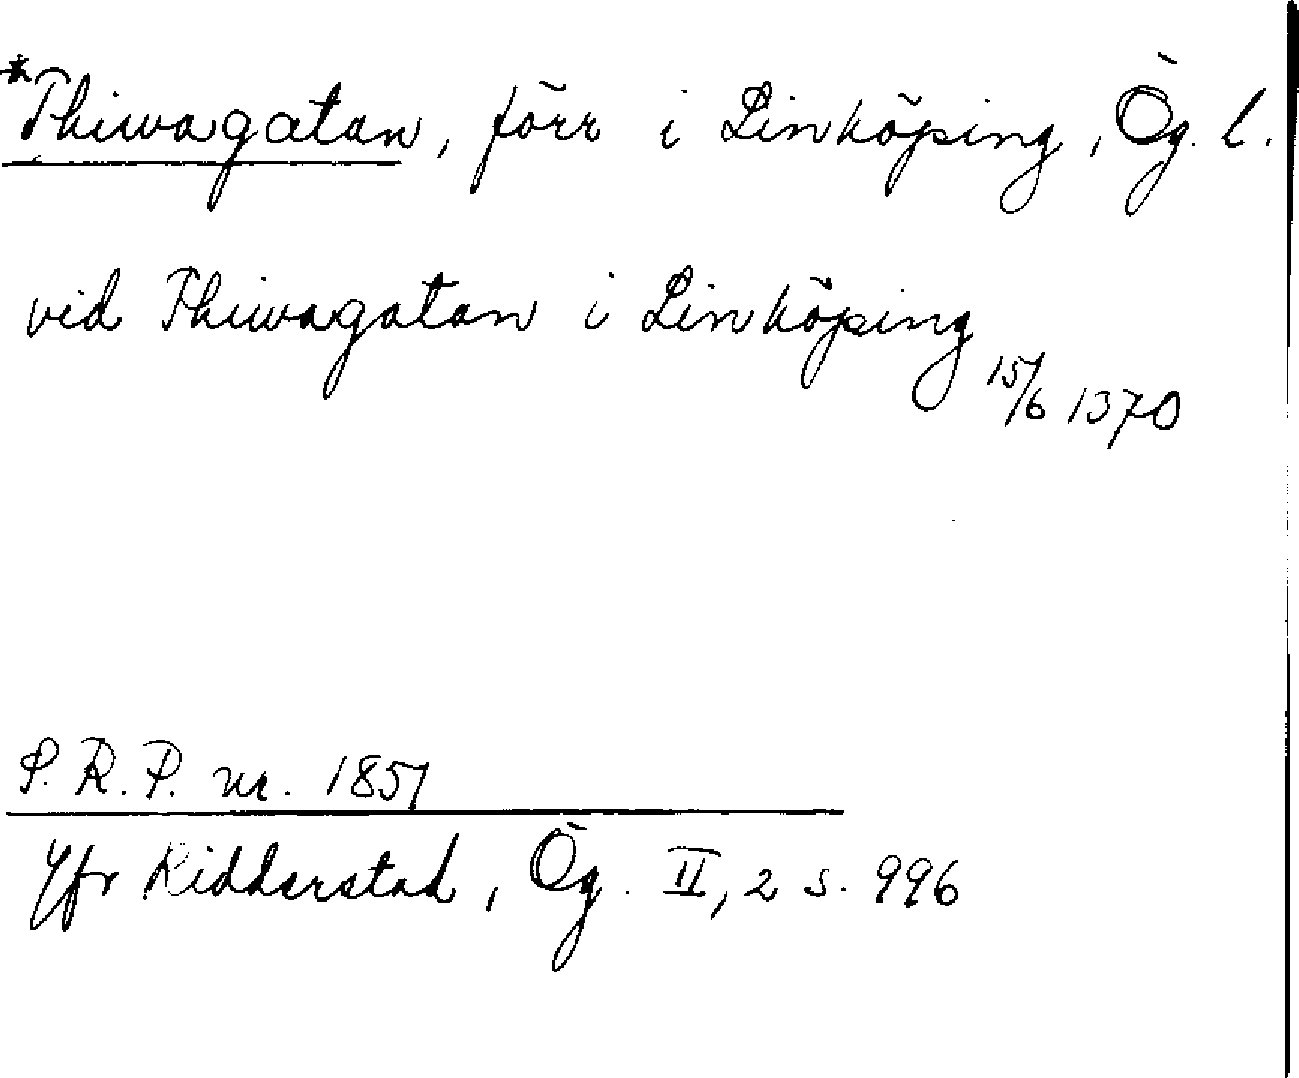 *Thiwagatan, förr i Linköping, Ög. l.
vid Thiwagatan i Linköping
15/6 1370
S. R. P. nr. 1851
Yfr Ridderstad, Ög. II, 2 s. 996